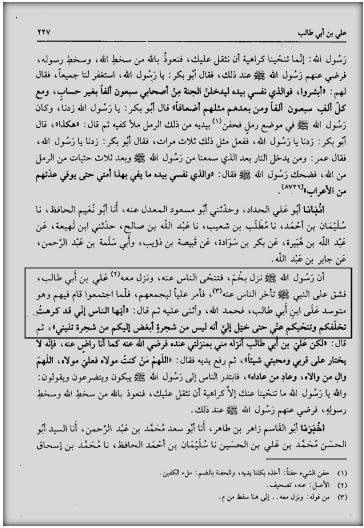 علي بن أبي طالب
٢٢٧
رَسُول الله: إنَّما تنحّينا كراهية أن نثقل عليك، فنعوذُ بالله من سخطِ الله، وسخطِ رسوله،
فرضي عنهم رَسُول الله ﷺ عند ذلك، فقال أبو بكر: يا رَسُول الله، استغفر لنا جميعاً، فقال
لهم: «أبشروا، فوالذي نفسي بيده ليدخلنّ الجنة مِنْ أصحابي سبعون ألفاً بغير حساب، ومع
كلّ ألفٍ سبعون ألفاً ومن بعدهم مثلهم أضعافاً» قال أبو بكر: يا رَسُول الله زدنا، وكان
رَسُول الله ﷺ في موضع رملٍ فحفن(١) بيديه من ذلك الرمل ملأ كفيه ثم قال: «هكذا»، قال
أبو بكر: زدنا يا رَسُول الله، ففعل مثل ذلك ثلاث مرات، فقال أبو بكر: زدنا يا رَسُول الله،
فقال عمر: ومن يدخل النار بعد الذي سمعنا من رَسُول الله ﷺ وبعد ثلاث حثيات من الرمل
من الله، فضحك رَسُول الله ﷺ فقال: «والذي نفسي بيده ما يفي بهذا أمتي حتى يوفي عدّتهم
من الأعراب»[٨٧٢٦].
أَنْبَأنَا أَبُو علي الحداد، وحدّثني أَبُو مسعود المعدل عنه، أَنا أَبُو نُعَيم الحافظ، نا
سُلَيْمَان بن أَحْمَد، نا مُطَّلب بن شعيب، نا عَبْد الله بن صالح، حدّثني ابن لَهيعة، عَن
عَبْد الله بن هُبَيْرة، عَن بكر بن سَوَادة، عَن قَبيصة بن ذؤيب، وأَبي سَلَمة بن عَبْد الرَّحمن،
عَن جابر بن عَبْد الله.
أن رَسُول الله ﷺ نزل بخُمّ، فتنحّى الناس عنه، ونزل معه(٢) عَلي بن أَبي طالب،
فشق على النبي ﷺ تأخر الناس عنه(٣)، فأمر علياً ليجمعهم، فلمّا اجتمعوا قام فيهم وهو
متوسد عَلَى ابن أَبي طالب، فحمد الله، وأثنى عليه ثم قال: «أيّها الناس إنّي قد كرهتُ
تخلّفكم وتنحّيكم عنّي حتى خيّل إليَّ أنه ليس من شجرةٍ أبغض إليكم من شجرة تليني»، ثم
قال: «لكن عَليّ بن أَبي طالب أنزله مني بمنزلتي عنده فرضي الله عنه كما أنا راضٍ عنه، فإنّه لا
يختار على قربي ومحبتي شيئاً»، ثم رفع يديه فقال: «اللّهمّ مَنْ كنتُ مولاه فعليّ مولاه، اللّهمّ
والِ من والاه، وعادِ من عاداه»، فابتدر الناس إلى رَسُول الله ﷺ يبكون ويتضرعون ويقولون:
والله يا رَسُول الله ما تنحينا عنك إلاّ كراهية أن نثقل عليك، فنعوذ بالله من سخط الله وسخطِ
رسوله، فرضي عنهم رَسُول الله ﷺ عند ذلك.
أَخْبَرَنَا أَبُو القَاسم زاهر بن طاهر، أَنا أَبُو سعد مُحَمَّد بن عَبْد الرَّحمن، أَنا السيد أَبُو
الحسَن مُحَمَّد بن عَلي بن الحسَين نا سُلَيْمَان بن أَحْمَد الحافظ، نا مُحَمَّد بن إسحاق
(١) حفن الشيء حفناً: أخذه بكلتا يديه، والحفنة بالضم: ملء الكفين.
(٢) الأصل: عنه، تصحيف.
(٣) من قوله: ونزل معه.. إلى هنا سقط من م.